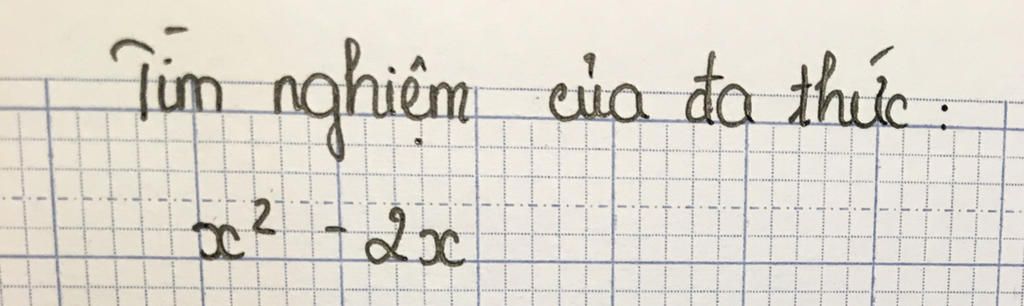 Tìm nghiệm của đa thức :
x² - 2x